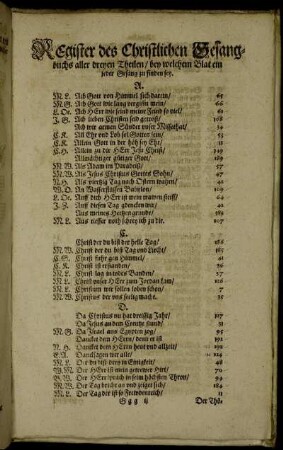 REgister des Christlichen Gesang-
buchs aller dreyen Theilen / bey welchem Blat ein
jeder Gesang zu finden sey.
A.
M. L. Ach Gott von Himmel sich darein /
M. G. Ach Gott wie lang vergessen mein / 66
L. Oe. Ach HErr wie seind meiner Feind so viel / 61
J. G. Ach lieben Christen seid getrost / 108
Ach wir armen Sünder unser Missethat /
C. K. All Ehr und Lob sol Gottes sein /
E. K. Allein Gott in der höh sey Ehr / 11
C. H. Allein zu dir HErr Jesu Christ / 149
Allmächtiger gütiger Gott / 189
M. W. Als Adam im Paradeis / 57
M. W. Als Jesus Christus Gottes Sohn / 47
N. H. Als viertzig Tag nach Ostern waren / 42
W. D. An Wasserflüssen Babylon / 109
L. Oe. Auff dich HErr ist mein trawen steiff / 64
J. Z. Auff diesen Tag gedencken wir /
Aus meines Hertzen grunde / 189
M. L. Aus tieffer noth schrey ich zu dir. 107
C.
Christ der du bist der helle Tag / 186
M. W. Christ der du bist Tag und Liecht / 185
E. S. Christ fuhr gen Himmel / 41
C. K. Christ ist erstanden / 36
M. L. Christ lag in todes Banden / 37
M. L. Christ unser HErr zum Jordan kam / 116
M. L. Christum wir sollen loben schon / 7
M. W. Christus der uns seelig macht. 25
D.
Da Christus nu hat dreissig Jahr / 107
Da Jesus an dem Creutze stund / 31
M. G. Da Israel aus Egypten zog / 95
Dancket dem HErrn / denn er ist 191
N. H. Dancket dem HErrn heut und allzeit / 191
Dancksagen wir alle / 124
M. L. Der du bist drey in Einigkeit / 48
W. M. Der HErr ist mein getrewer Hirt / 70
B. W. Der HErr sprach in seim höchsten Thron / 94
M. W. Der Tag bricht an und zeiget sich / 184
M. L. Der Tag der ist so Frewdenreich 11
Ggg ij Der Thö-